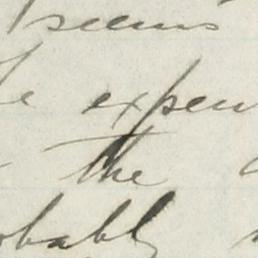 seems
expen
the
obably